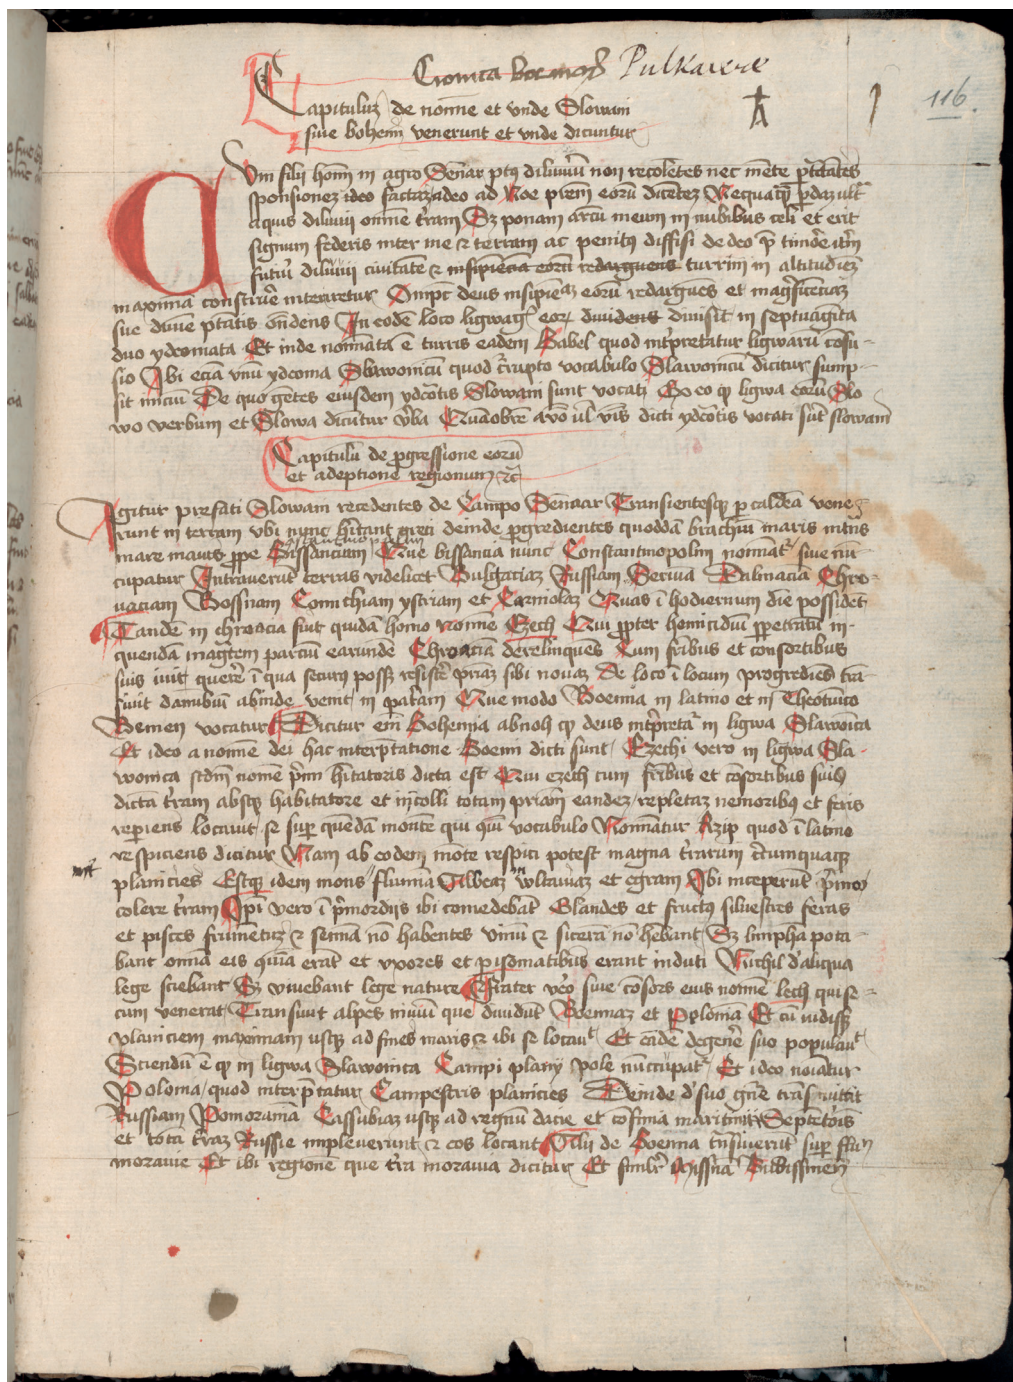 Cronica boemorum Pulkavae
116.
Capitulum de nomine et vnde Slowani
siue bohemi venerunt et vnde dicuntur
Cum filii hominum in agro Sennar post diluuium non recolentes nec mente pertractantes
sponsionem ideo factam adeo ad Noe patrem eorum dicentem Nequaquam perdam vltra
aquis diluuii omnem terram Sed ponam arcum meum in nubibus celi et erit
signum federis inter me et terram ac penitus diffisi de deo timere iterum
futurum diluuii ciuitatem et insipienciam eorum redarguens turrim in altitudinem
maximam construere niterentur Omnipotens deus insipienciam eorum redarguens et magnificenciam
sue diuine potestatis ostendens In eodem loco ligwagia eorum diuidens diuisit in septuaginta
duo ydeomata Et inde nominata est turris eadem Babel quod interpretatur ligwarum confu-
sio Ibi eciam vnum ydeoma Slawonicum quod corrupto vocabulo Slawonicum dicitur sump-
sit inicium De quo gentes eiusdem ydeomatis Slowani sunt vocati Ex eo quod ligwa eorum Slo
wo verbum et Slowa dicuntur verba Quamobrem a verbo vel verbis dicti ydeomatis vocati sunt slowani
Capitulum de progressione eorum
et adeptione regionum etc
Igitur prefati Slowani recedentes de Campo Sennaar Transientesque per caldeam vene-
runt in terram vbi nunc habitant greci deinde progredientes quoddam brachium maris intrans
mare maius prope Bissanciam Que bissancia nunc Constantinopolim nominatur siue nu-
cupatur Intrauerunt terras videlicet Bulgariam Russiam Seruiam Dalmaciam Chro-
uaciam Bossnam Corinthiam ystriam et Carniolam Quas in hodiernum diem possident
Tandem in chroacia fuit quidam homo nomine Czech Qui propter homicidium perpetratum in
quendam magnatem parcium earundem Chroaciam derelinquens Cum fratribus et consortibus
suis iuit querere in qua securus posset resistere patriam sibi nouam De loco in locum progrediens tran
siuit danubium abinde venit in patriam Que modo Boemia in latino et in Theotunico
Bemen vocatur Dicitur enim Bohemia a boh quod deus interpretatur in ligwa Slawonica
Et ideo a nomine dei hac interpretatione Boemi dicti sunt Czechi vero in ligwa Sla-
wonica secundum nomen primi habitatoris dicta est Qui czech cum fratribus et consortibus suis
dictam terram absque habitatore et incolli totam patriam eandem repletam nemoribus et feris
reperiens locauit se super quendam montem qui quidem vocabulo Nominatur Rzip quod in latino
respiciens dicitur Nam ab eodem monte respici potest magna terrarum circumquaque
planicies Estque idem mons flumina Albeam wltauam et egram Ibi inceperunt primo
colere terram Ipsi vero in primordijs ibi comedebant Glandes et fructus siluestres feras
et pisces frumentum et semina non habentes vinum et siceram non habebant Sed limpham pota-
bant omnia eis communia erant et vxores et perisomatibus erant induti Nichil de aliqua
lege sciebant Sed viuebant lege nature Frater vero siue consors eius nomine lech qui se-
cum venerat Transiuit alpes niuium que diuidunt Boemiam et Poloniam Et cum vidisset
planiciem maximam vsque ad fines maris et ibi se locauit Et eandem degenere suo populauit
Sciendum est quod in ligwa Slawonica Campi plany Pole nuncupatur Et ideo nominatur
Polonia quod interpretatur Campestris planicies Deinde de suo genere transiuit
Russiam Pomoraniam Cassubiam vsque ad regnum dacie et confinia maritima Septentrionis
et totam terram Russie impleuerunt et eos locauit Alii de Boemia transiuerunt super fluuium
morauie Et ibi regionem que terra morauia dicitur Et similiter Missnam Budissinensem